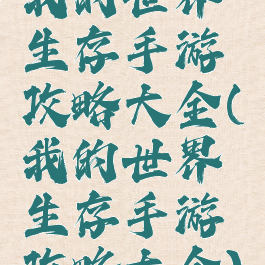 我的世界
生存手游
攻略大全(
我的世界
生存手游
攻略大全)